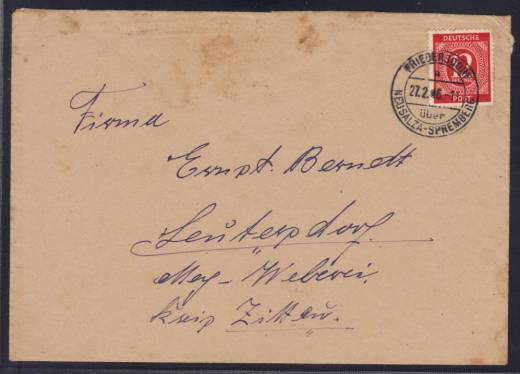 DEUTSCHE
12
POST
FRIEDERSDORF
27.2.46
über
NEUSALZA-SPREMBERG
Firma
Ernst Berndt
Leutersdorf.
Weberei.
Kreis Zittau.